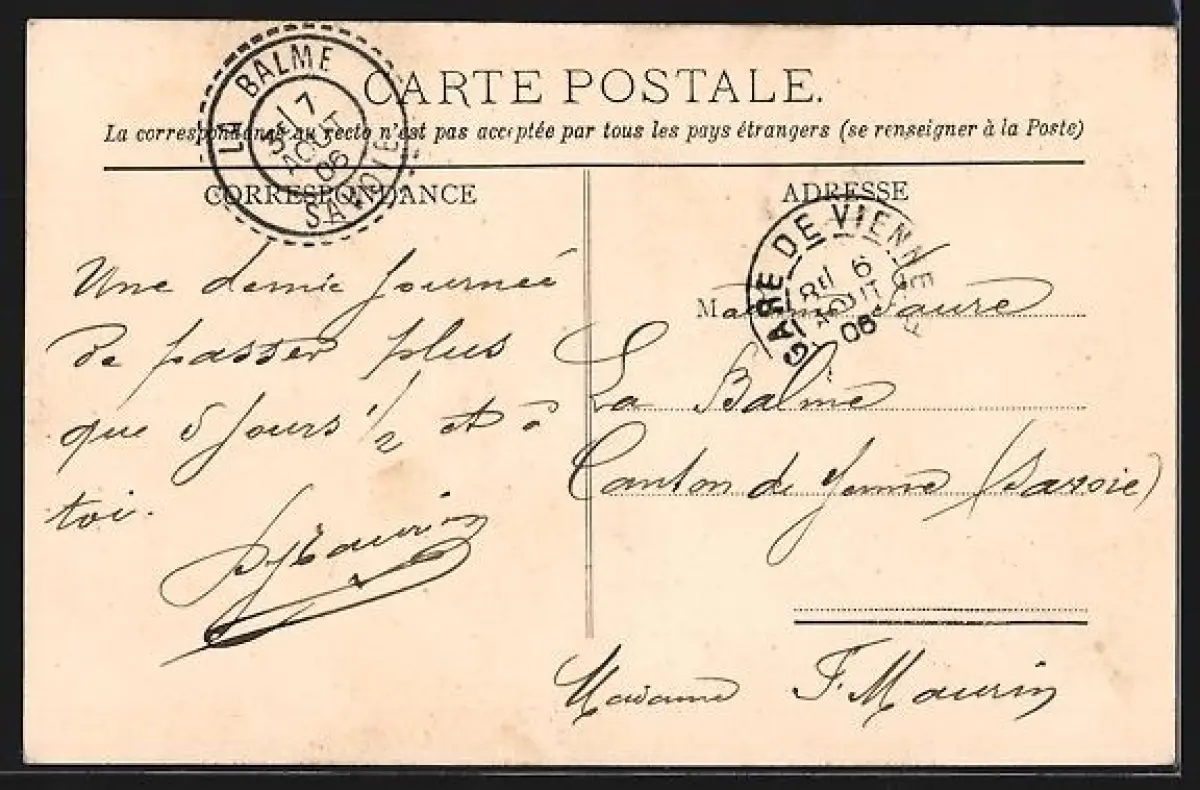 CARTE POSTALE.
La correspondance au recto n'est pas acceptée par tous les pays étrangers (se renseigner à la Poste)
LA BALME
7
AOUT
06
SAVOIE
CORRESPONDANCE
Une demie journée
de passer plus
que 5 jours 1/2 et à
toi.
Maurin
ADRESSE
GARE DE VIENNE
6
AOUT
06
Madame Faure
La Balme
Canton de Yenne (Savoie)
Madame F. Maurin